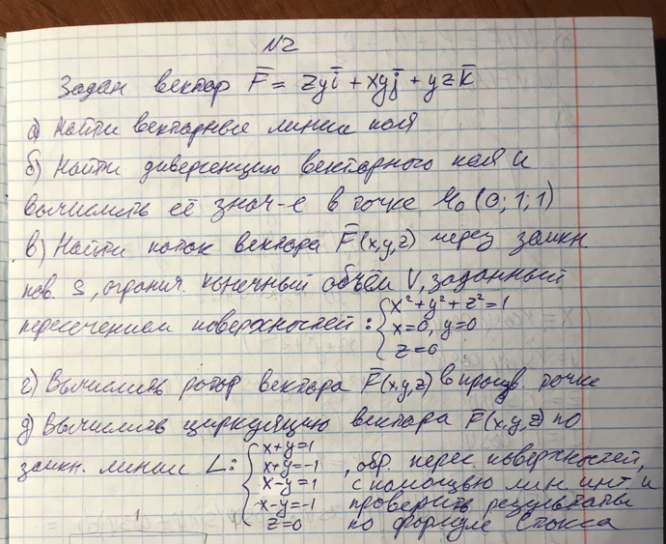 N2
Задан вектор F̄ = zyī + xyj̄ + yzk̄
а) Найти векторные линии поля
б) Найти дивергенцию векторного поля и
вычислить её знач-е в точке M₀ (0; 1; 1)
в) Найти поток вектора F̄(x,y,z) через замкн.
пов. S, огранич. конечный объём V, заданный
пересечением поверхностей: { x²+y²+z²=1
x=0, y=0
z=0
г) Вычислить ротор вектора F̄(x,y,z) в произв. точке
д) Вычислить циркуляцию вектора F̄(x,y,z) по
замкн. линии L: { x+y=1
x+y=-1 , обр. перес. поверхностей,
x-y=1 с помощью лин. инт. и
x-y=-1 проверить результаты
z=0 по формуле Стокса